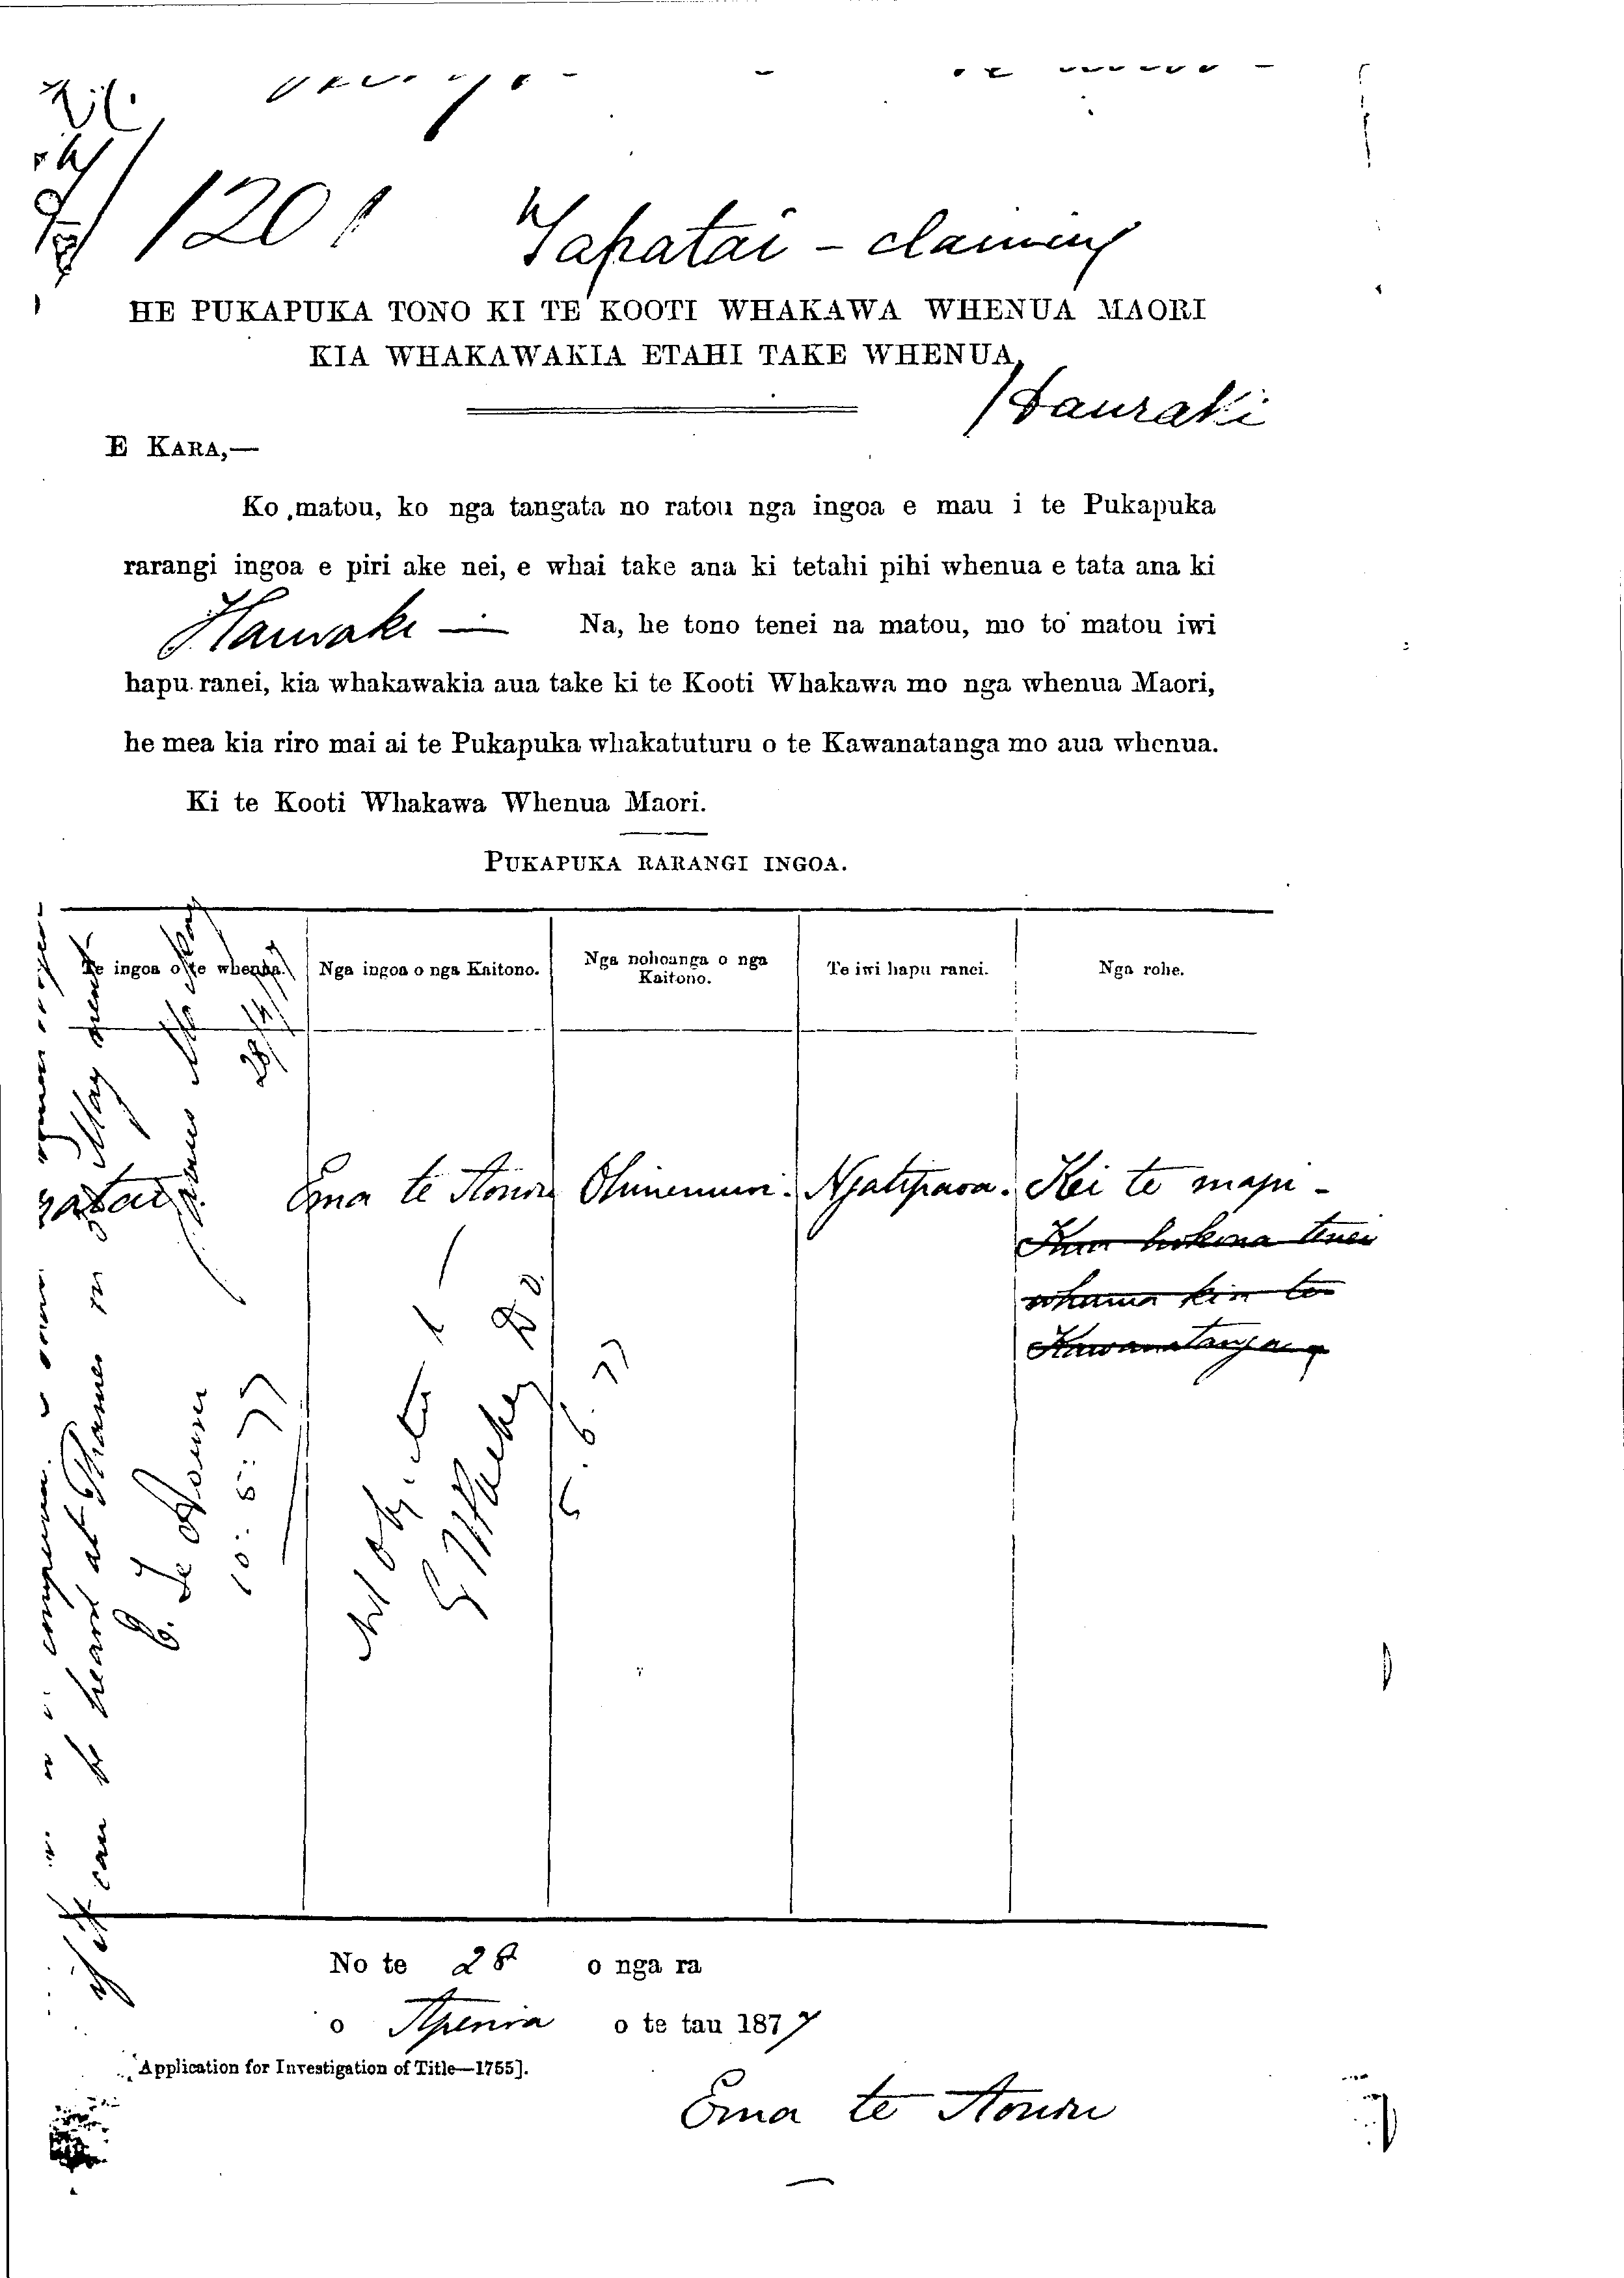 1201 Tapatai - claiming
HE PUKAPUKA TONO KI TE KOOTI WHAKAWA WHENUA MAORI
KIA WHAKAWAKIA ETAHI TAKE WHENUA,
Hauraki
E KARA,—
Ko matou, ko nga tangata no ratou nga ingoa e mau i te Pukapuka
rarangi ingoa e piri ake nei, e whai take ana ki tetahi pihi whenua e tata ana ki
Hauraki — Na, he tono tenei na matou, mo to matou iwi
hapu ranei, kia whakawakia aua take ki te Kooti Whakawa mo nga whenua Maori,
he mea kia riro mai ai te Pukapuka whakatuturu o te Kawanatanga mo aua whenua.
Ki te Kooti Whakawa Whenua Maori.
PUKAPUKA RARANGI INGOA.
Te ingoa o te whenua. Nga ingoa o nga Kaitono. Nga nohoanga o nga Kaitono. Te iwi hapu ranei. Nga rohe.
Ema te Aouru Ohinemuri. Ngatipaoa. Kei te mapi -
Kua hokona tenei
whenua kia te
Kawanatanga
if it can be heard at Thames in May next
28/4/77
E. Te Aouru
10:5:77
No Objection
5.6.77
No te 28 o nga ra
o Aperira o te tau 1877
Application for Investigation of Title—1755].
Ema te Aouru